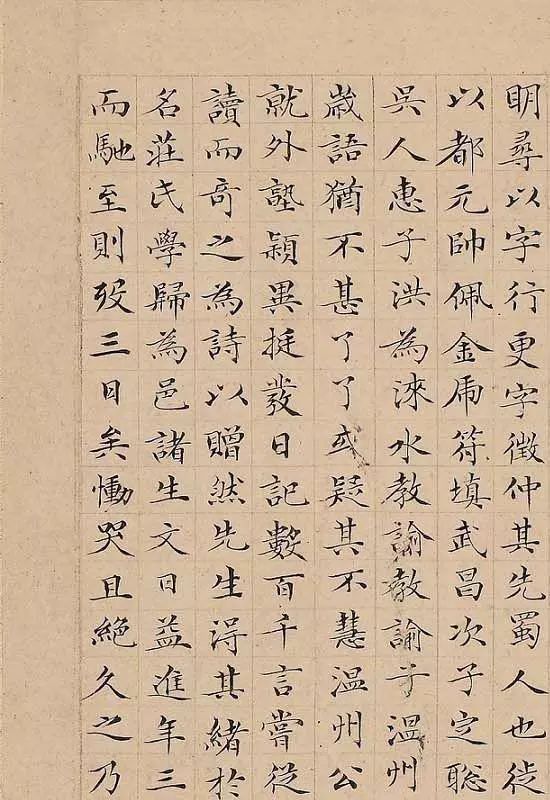 明尋以字行更字徵仲其先蜀人也徒
以都元帥佩金虎符填武昌次子定聡
吳人惠子洪為淶水教諭教諭子溫州
歲語猶不甚了了或疑其不慧溫州公
就外塾穎異挺發日記數百千言嘗從
讀而奇之為詩以贈然先生淂其緒於
名莊氏學歸為邑諸生文日益進年三
而馳至則歿三日矣慟哭且絕久之乃